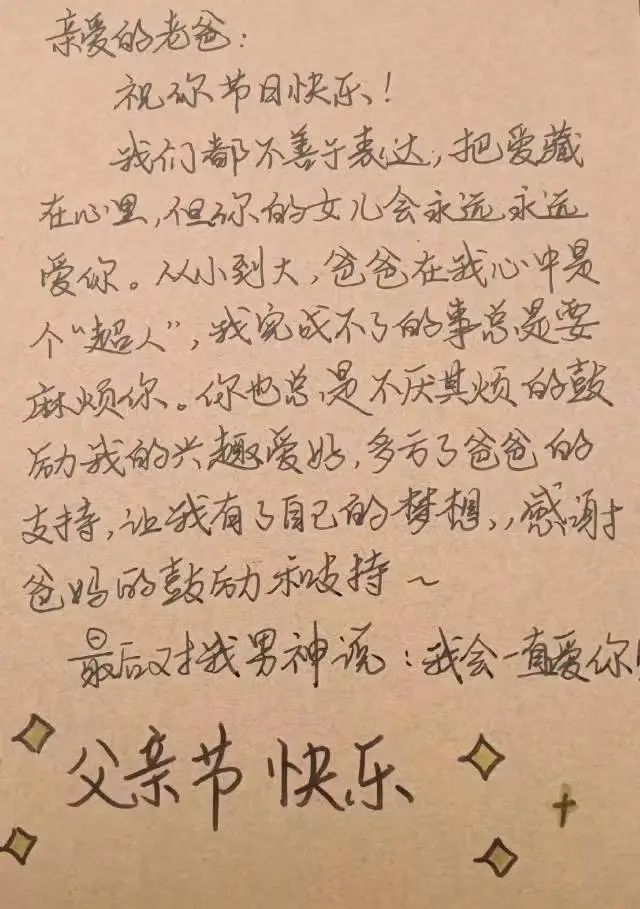 亲爱的老爸：
祝你节日快乐！
我们都不善于表达，把爱藏
在心里，但你的女儿会永远永远
爱你。从小到大，爸爸在我心中是
个“超人”，我完成不了的事总是要
麻烦你。你也总是不厌其烦的鼓
励我的兴趣爱好，多亏了爸爸的
支持，让我有了自己的梦想，，感谢
爸妈的鼓励和支持～
最后对我男神说：我会一直爱你！
父亲节快乐